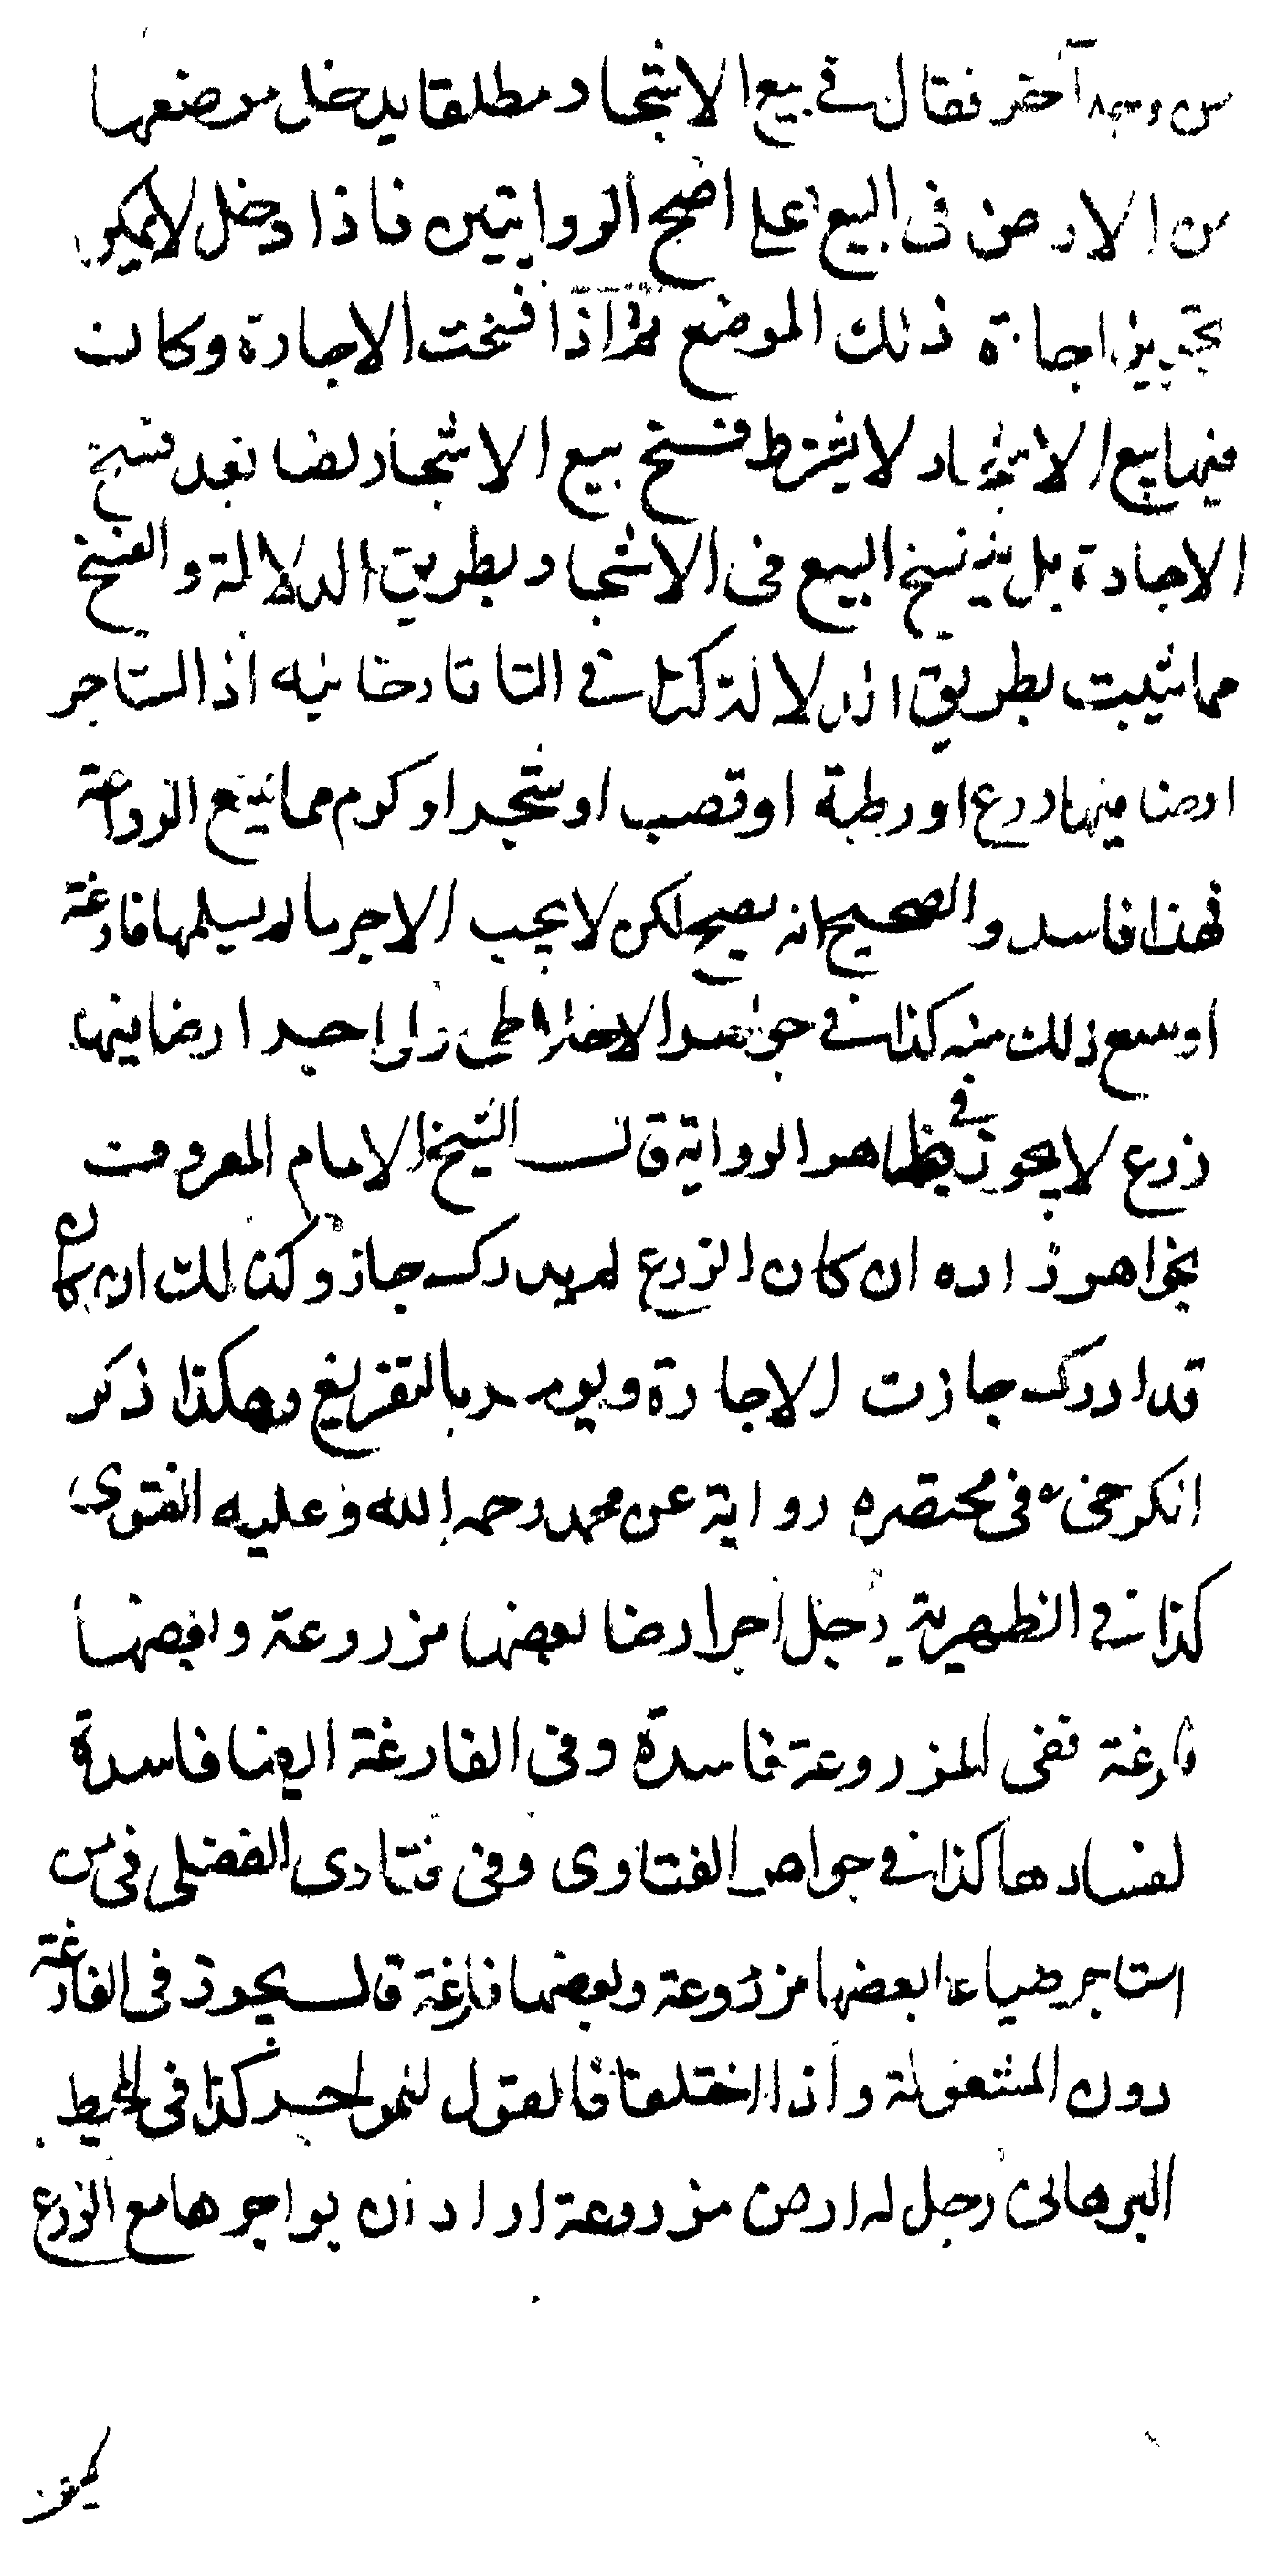 من وجه آخر فقال في بيع الاشجار مطلقا يدخل موضعها
من الارض في البيع على اصح الروايتين فاذا دخل لا يمكن
تجويز اجازة ذلك الموضع ثم اذا فسخت الاجارة وكانت
فيها بيع الاشجار لا يشترط فسخ بيع الاشجار نصا بعد فسخ
الاجارة بل ينفسخ البيع في الاشجار بطريق الدلالة والفسخ
مما يثبت بطريق الدلالة كذا في التاتارخانيه اذا استاجر
ارضا فيها زرع او رطبة او قصب او شجر او كرم مما يمنع الزراعة
فهذا فاسد والصحيح انه يصح لكن لا يجب الاجر ما لم يسلمها فارغة
او سع ذلك منه كذا في جواهر الاخلاطى رجل اجر ارضا فيها
زرع لا يجوز في ظاهر الرواية قال الشيخ الامام المعروف
بخواهر زاده ان كان الزرع لم يدرك جاز وكذلك ان كان
قد ادرك جازت الاجارة ويومر بالتفريغ وهكذا ذكر
الكرخى في مختصره رواية عن محمد رحمه الله وعليه الفتوى
كذا في الظهيرية رجل اجر ارضا بعضها مزروعة وبعضها
فارغة ففي المزروعة فاسدة وفي الفارغة ايضا فاسدة
لفسادها كذا في جواهر الفتاوى وفي فتاوى الفضلى في من
استاجر ضياعا بعضها مزروعة وبعضها فارغة قال يجوز في الفارغة
دون المشغولة واذا اختلفا فالقول للمواجر كذا في المحيط
البرهانى رجل له ارض مزروعة اراد ان يواجرها مع الزرع